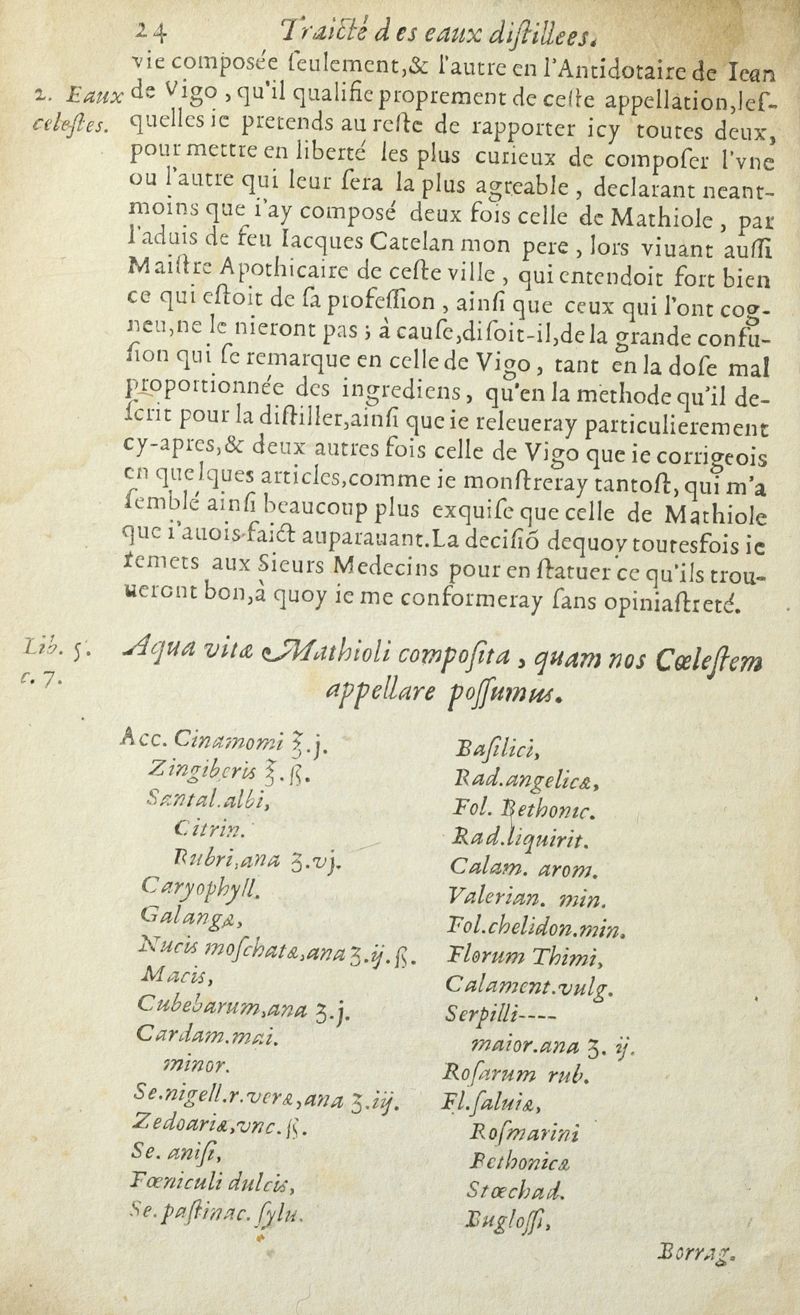 24 Traicté des eaux distillees.
vie composée seulement,& l'autre en l'Antidotaire de Iean
2. Eaux celestes.
de Vigo , qu'il qualifie proprement de ceste appellation,les-
quelles ie pretends au reste de rapporter icy toutes deux,
pour mettre en liberté les plus curieux de composer l'vne
ou l'autre qui leur sera la plus agreable , declarant neant-
moins que i'ay composé deux fois celle de Mathiole , par
l'aduis de feu Iacques Catelan mon pere , lors viuant aussi
Maistre Apothicaire de ceste ville , qui entendoit fort bien
ce qui estoit de sa profession , ainsi que ceux qui l'ont cog-
neu,ne le nieront pas ; à cause,disoit-il,de la grande confu-
sion qui se remarque en celle de Vigo , tant en la dose mal
proportionnée des ingrediens, qu'en la methode qu'il de-
scrit pour la distiller,ainsi que ie releueray particulierement
cy-apres,& deux autres fois celle de Vigo que ie corrigeois
en quelques articles,comme ie monstreray tantost, qui m'a
semblé ainsi beaucoup plus exquise que celle de Mathiole
que i'auois faict auparauant.La decisiõ dequoy toutesfois ie
remets aux Sieurs Medecins pour en statuer ce qu'ils trou-
ueront bon,à quoy ie me conformeray sans opiniastreté.
Lib. 5.
c. 7.
Aqua vitæ Mathioli composita , quam nos Cœlestem
appellare possumus.
Acc. Cinamomi ℥.j.
Zingiberis ℥.ß.
Santal.albi,
Citrin.
Rubri,ana ʒ.vj.
Caryophyll.
Galangæ,
Nucis moschatæ,ana ʒ.ij.ß.
Macis,
Cubebarum,ana ʒ.j.
Cardam.mai.
minor.
Se.nigell.r.veræ,ana ʒ.iij.
Zedoariæ,vnc.ß.
Se. anisi,
Fœniculi dulcis,
Se.pastinac. sylu.
Basilici,
Rad.angelicæ,
Fol. Bethonic.
Rad.liquirit.
Calam. arom.
Valerian. min.
Fol.chelidon.min.
Florum Thimi,
Calament.vulg.
Serpilli----
maior.ana ʒ. ij.
Rosarum rub.
Fl.saluiæ,
Rosmarini
Bethonicæ
Stœchad.
Buglossi,
Borrag.